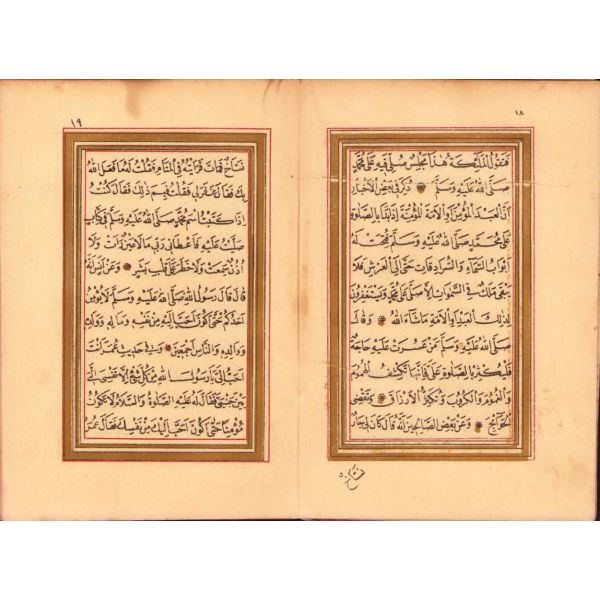 ١٨
فَتَقُولُ الْمَلٰئِكَةُ هٰذَا مَجْلِسٌ صُلِّيَ فِيهِ عَلَى مُحَمَّدٍ
صَلَّى اللهُ عَلَيْهِ وَسَلَّمَ ذُكِرَ فِي بَعْضِ الْأَخْبَارِ
أَنَّ الْعَبْدَ الْمُؤْمِنَ أَوِ الْأَمَةَ الْمُؤْمِنَةَ إِذَا بَدَأَ بِالصَّلٰوةِ
عَلَى مُحَمَّدٍ صَلَّى اللهُ عَلَيْهِ وَسَلَّمَ فُتِحَتْ لَهُ
أَبْوَابُ السَّمَاءِ وَالسُّرَادِقَاتِ حَتَّى إِلَى الْعَرْشِ فَلَا
يَبْقَى مَلَكٌ فِي السَّمٰوَاتِ إِلَّا صَلَّى عَلَى مُحَمَّدٍ وَيَسْتَغْفِرُونَ
لِذٰلِكَ الْعَبْدِ أَوِ الْأَمَةِ مَا شَاءَ اللهُ وَقَالَ
صَلَّى اللهُ عَلَيْهِ وَسَلَّمَ مَنْ عَسُرَتْ عَلَيْهِ حَاجَةٌ
فَلْيُكْثِرْ بِالصَّلٰوةِ عَلَيَّ فَإِنَّهَا تَكْشِفُ الْهُمُومَ
وَالْغُمُومَ وَالْكُرُوبَ وَتُكَثِّرُ الْأَرْزَاقَ وَتَقْضِي
الْحَوَائِجَ وَعَنْ بَعْضِ الصَّالِحِينَ أَنَّهُ قَالَ كَانَ لِي جَارٌ
نساخ
١٩
نَسَّاخٌ فَمَاتَ فَرَأَيْتُهُ فِي الْمَنَامِ فَقُلْتُ لَهُ مَا فَعَلَ اللهُ
بِكَ فَقَالَ غَفَرَ لِي فَقُلْتُ فَبِمَ ذٰلِكَ فَقَالَ كُنْتُ
إِذَا كَتَبْتُ اسْمَ مُحَمَّدٍ صَلَّى اللهُ عَلَيْهِ وَسَلَّمَ فِي كِتَابٍ
صَلَّيْتُ عَلَيْهِ فَأَعْطَانِي رَبِّي مَا لَا عَيْنٌ رَأَتْ وَلَا
أُذُنٌ سَمِعَتْ وَلَا خَطَرَ عَلَى قَلْبِ بَشَرٍ وَعَنْ أَنَسٍ أَنَّهُ
قَالَ قَالَ رَسُولُ اللهِ صَلَّى اللهُ عَلَيْهِ وَسَلَّمَ لَا يُؤْمِنُ
أَحَدُكُمْ حَتَّى أَكُونَ أَحَبَّ إِلَيْهِ مِنْ نَفْسِهِ وَمَالِهِ وَوَلَدِهِ
وَوَالِدِهِ وَالنَّاسِ أَجْمَعِينَ وَفِي حَدِيثِ عُمَرَ أَنْتَ
أَحَبُّ إِلَيَّ يَا رَسُولَ اللهِ مِنْ كُلِّ شَيْءٍ إِلَّا نَفْسِي الَّتِي
بَيْنَ جَنْبَيَّ فَقَالَ لَهُ عَلَيْهِ الصَّلٰوةُ وَالسَّلَامُ لَا تَكُونُ
مُؤْمِنًا حَتَّى أَكُونَ أَحَبَّ إِلَيْكَ مِنْ نَفْسِكَ فَقَالَ عُمَرُ